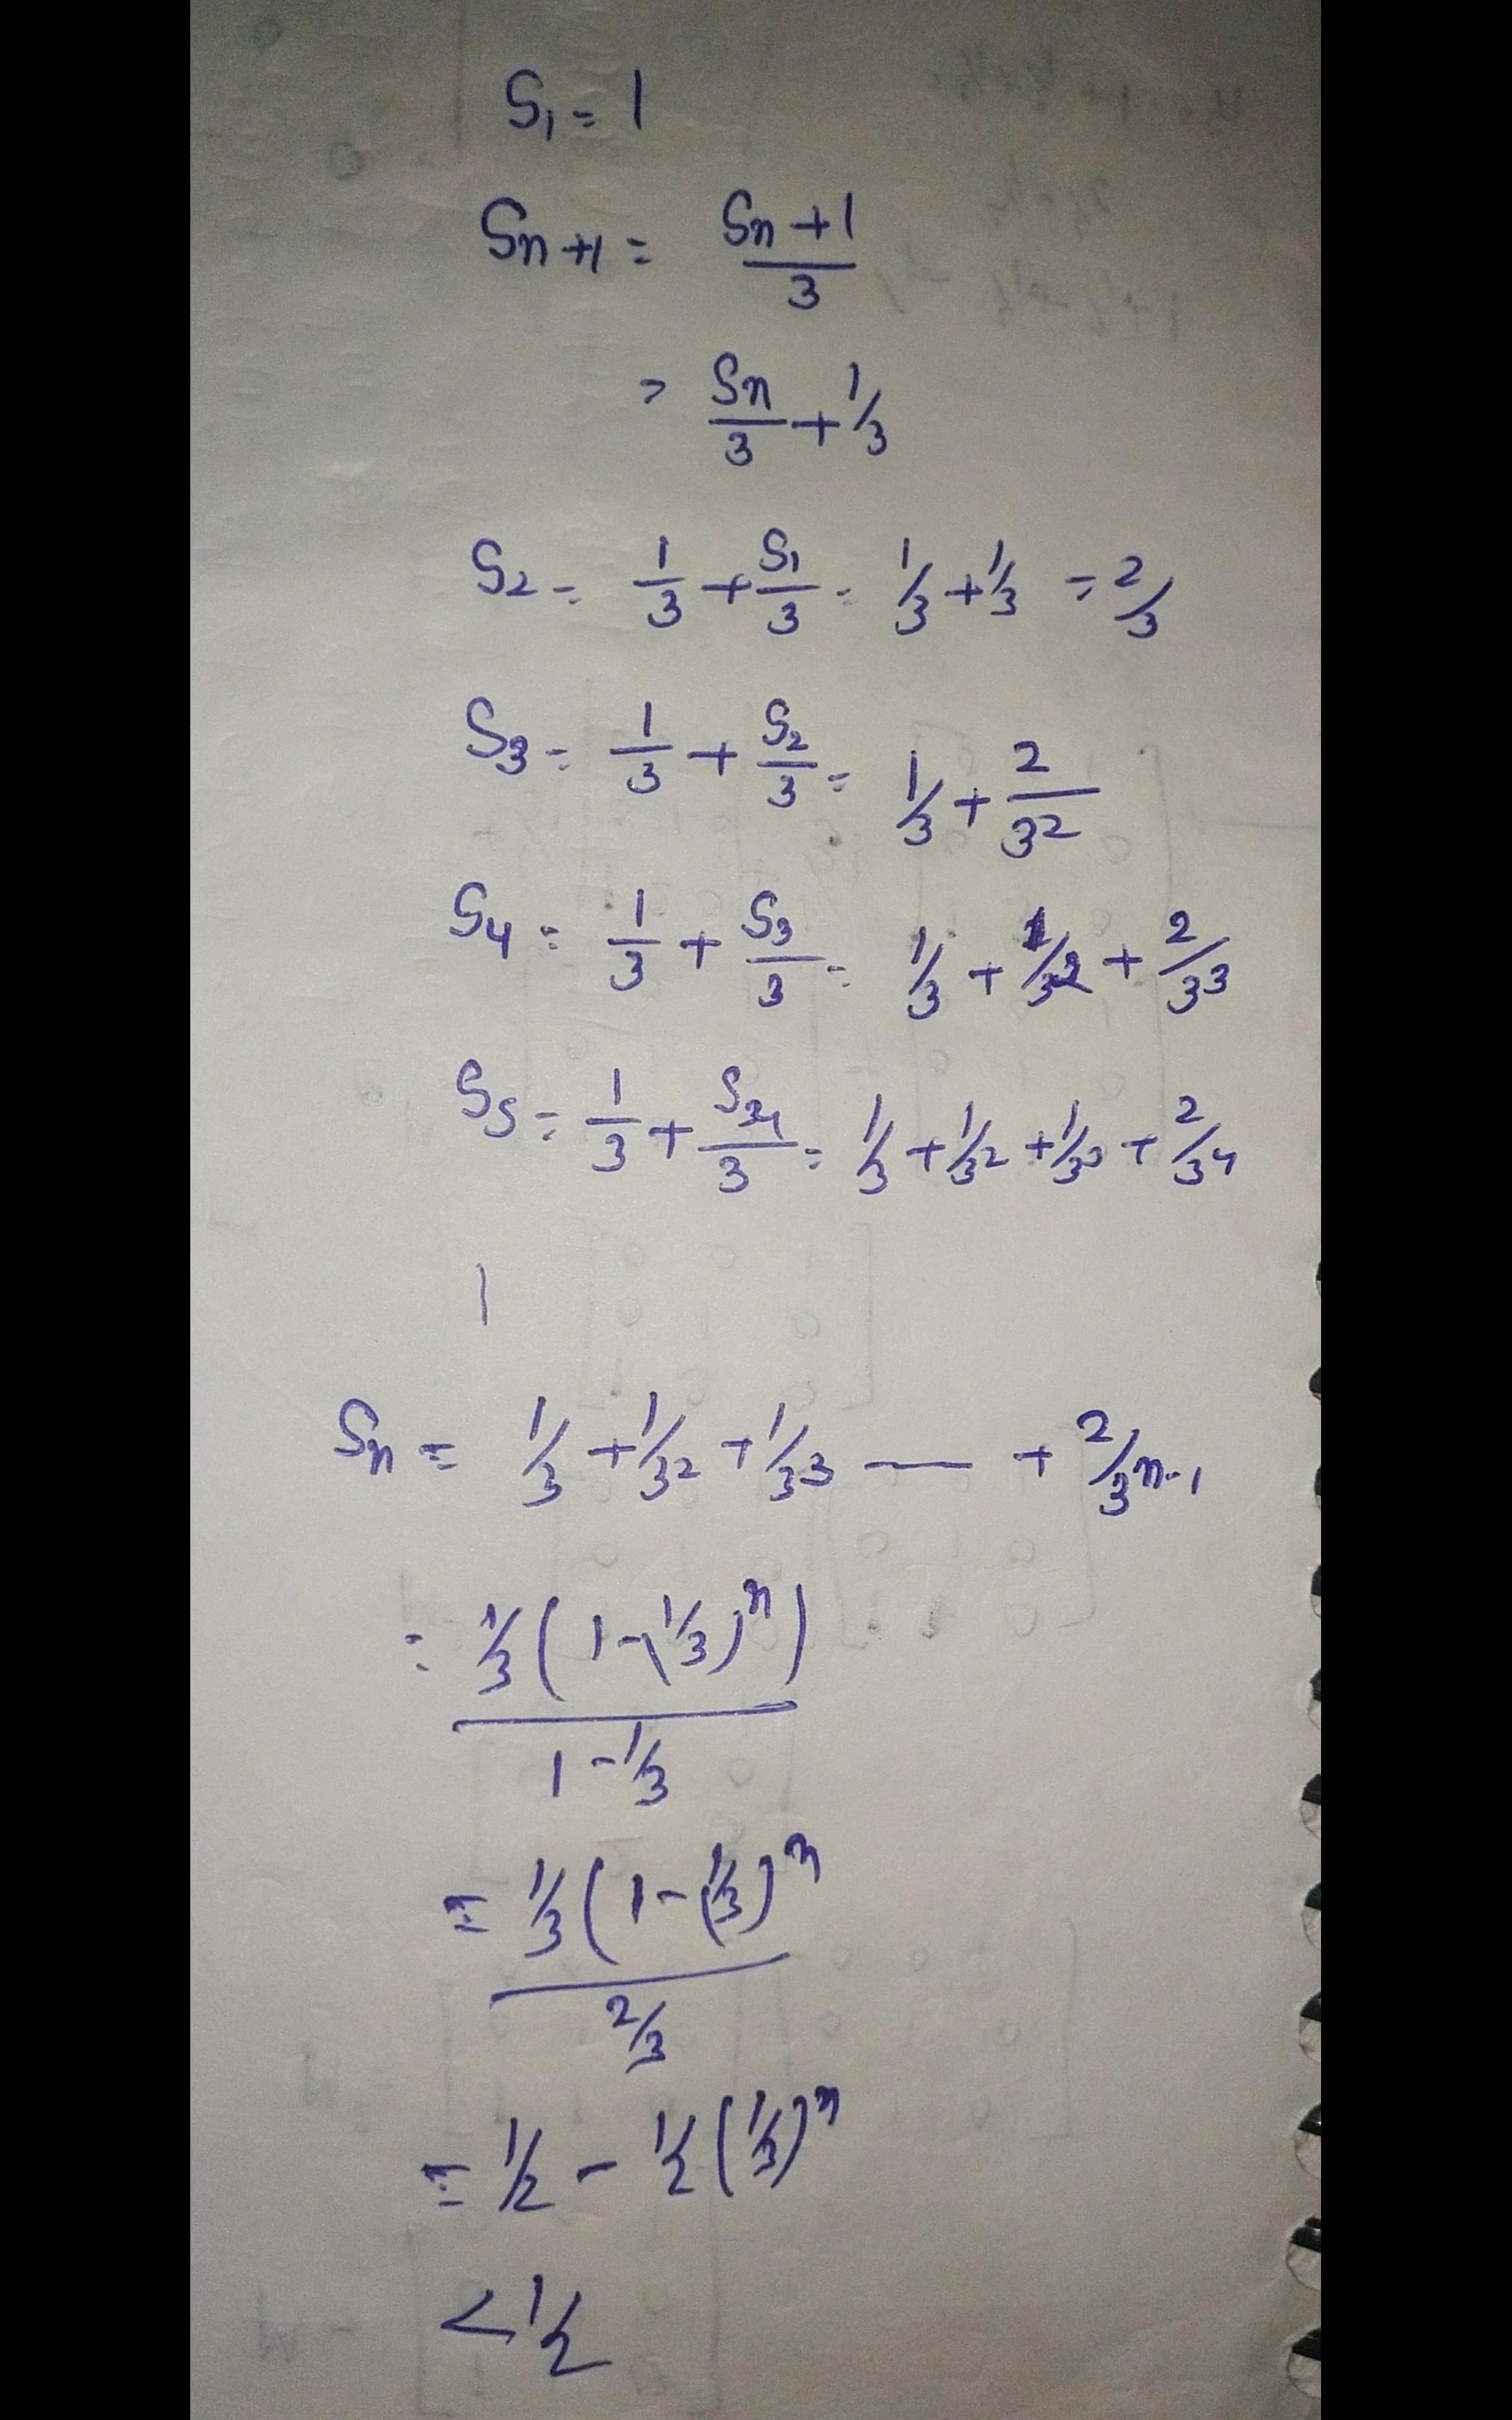 S₁ = 1
Sn+1 = (Sn+1)/3
= Sn/3 + 1/3
S₂ = 1/3 + S₁/3 = 1/3 + 1/3 = 2/3
S₃ = 1/3 + S₂/3 = 1/3 + 2/3²
S₄ = 1/3 + S₃/3 = 1/3 + 1/3² + 2/3³
S₅ = 1/3 + S₄/3 = 1/3 + 1/3² + 1/3³ + 2/3⁴
|
Sn = 1/3 + 1/3² + 1/3³ — + 2/3ⁿ⁻¹
= 1/3(1-(1/3)ⁿ)/(1-1/3)
= 1/3(1-(1/3)ⁿ/(2/3)
= 1/2 - 1/2(1/3)ⁿ
< 1/2